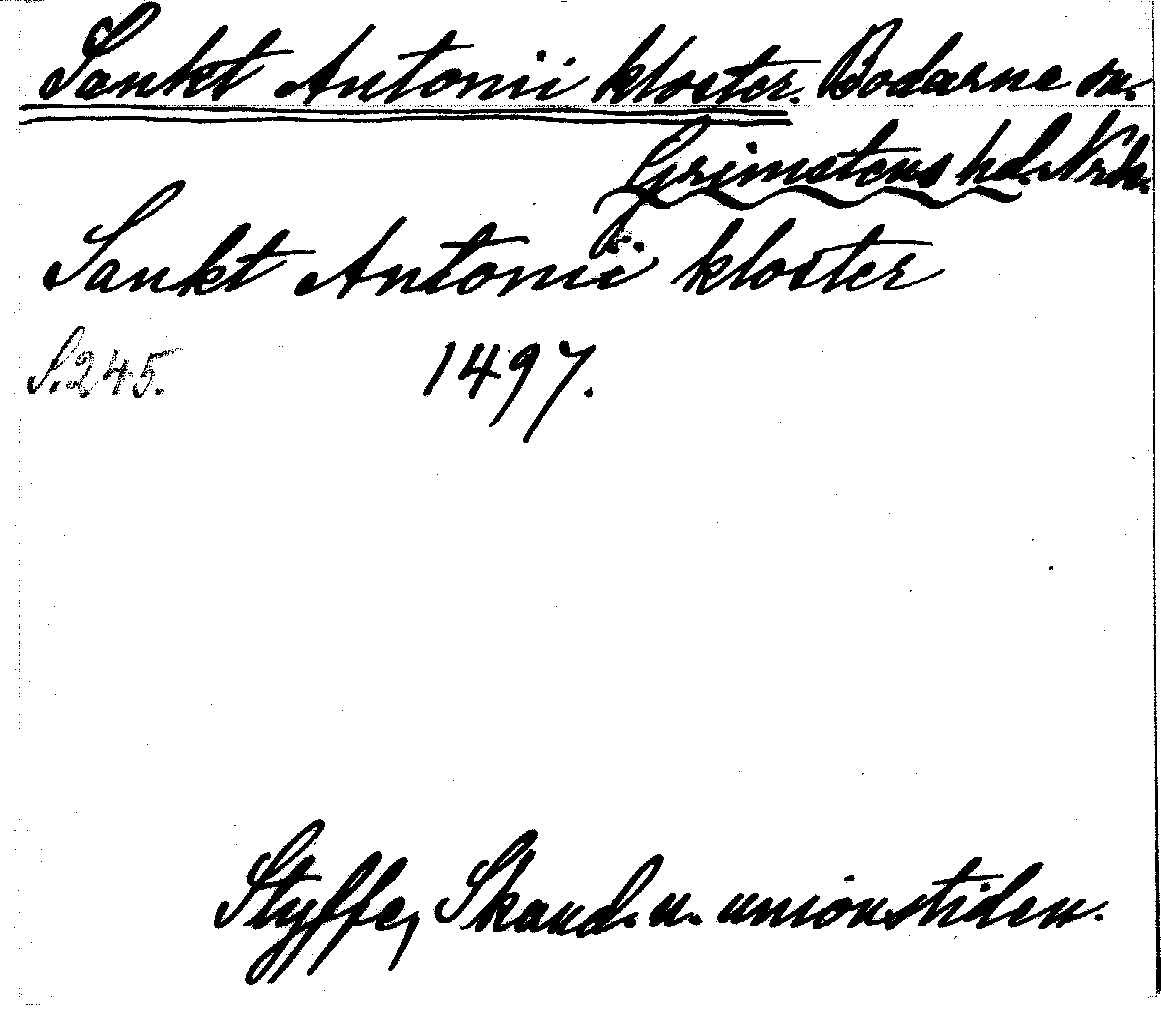 Sankt Antonii kloster. Bodarne sn.
Grimstens hd. Nrk.
Sankt Antonii kloster
S. 245. 1497.
Styffe, Skand. u. unionstiden.